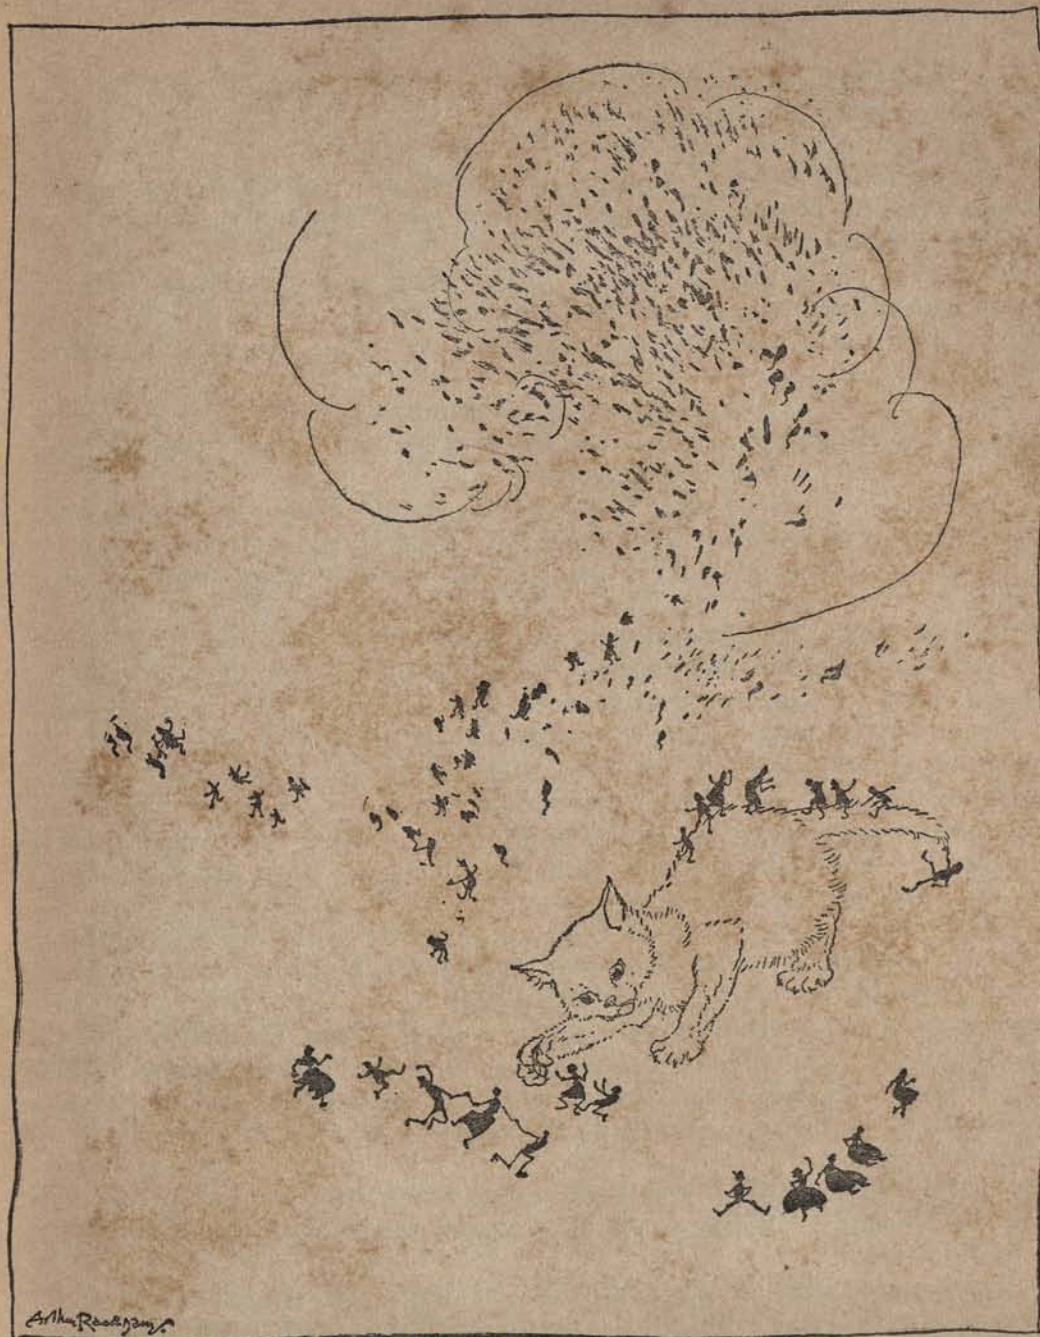 Arthur Rackham